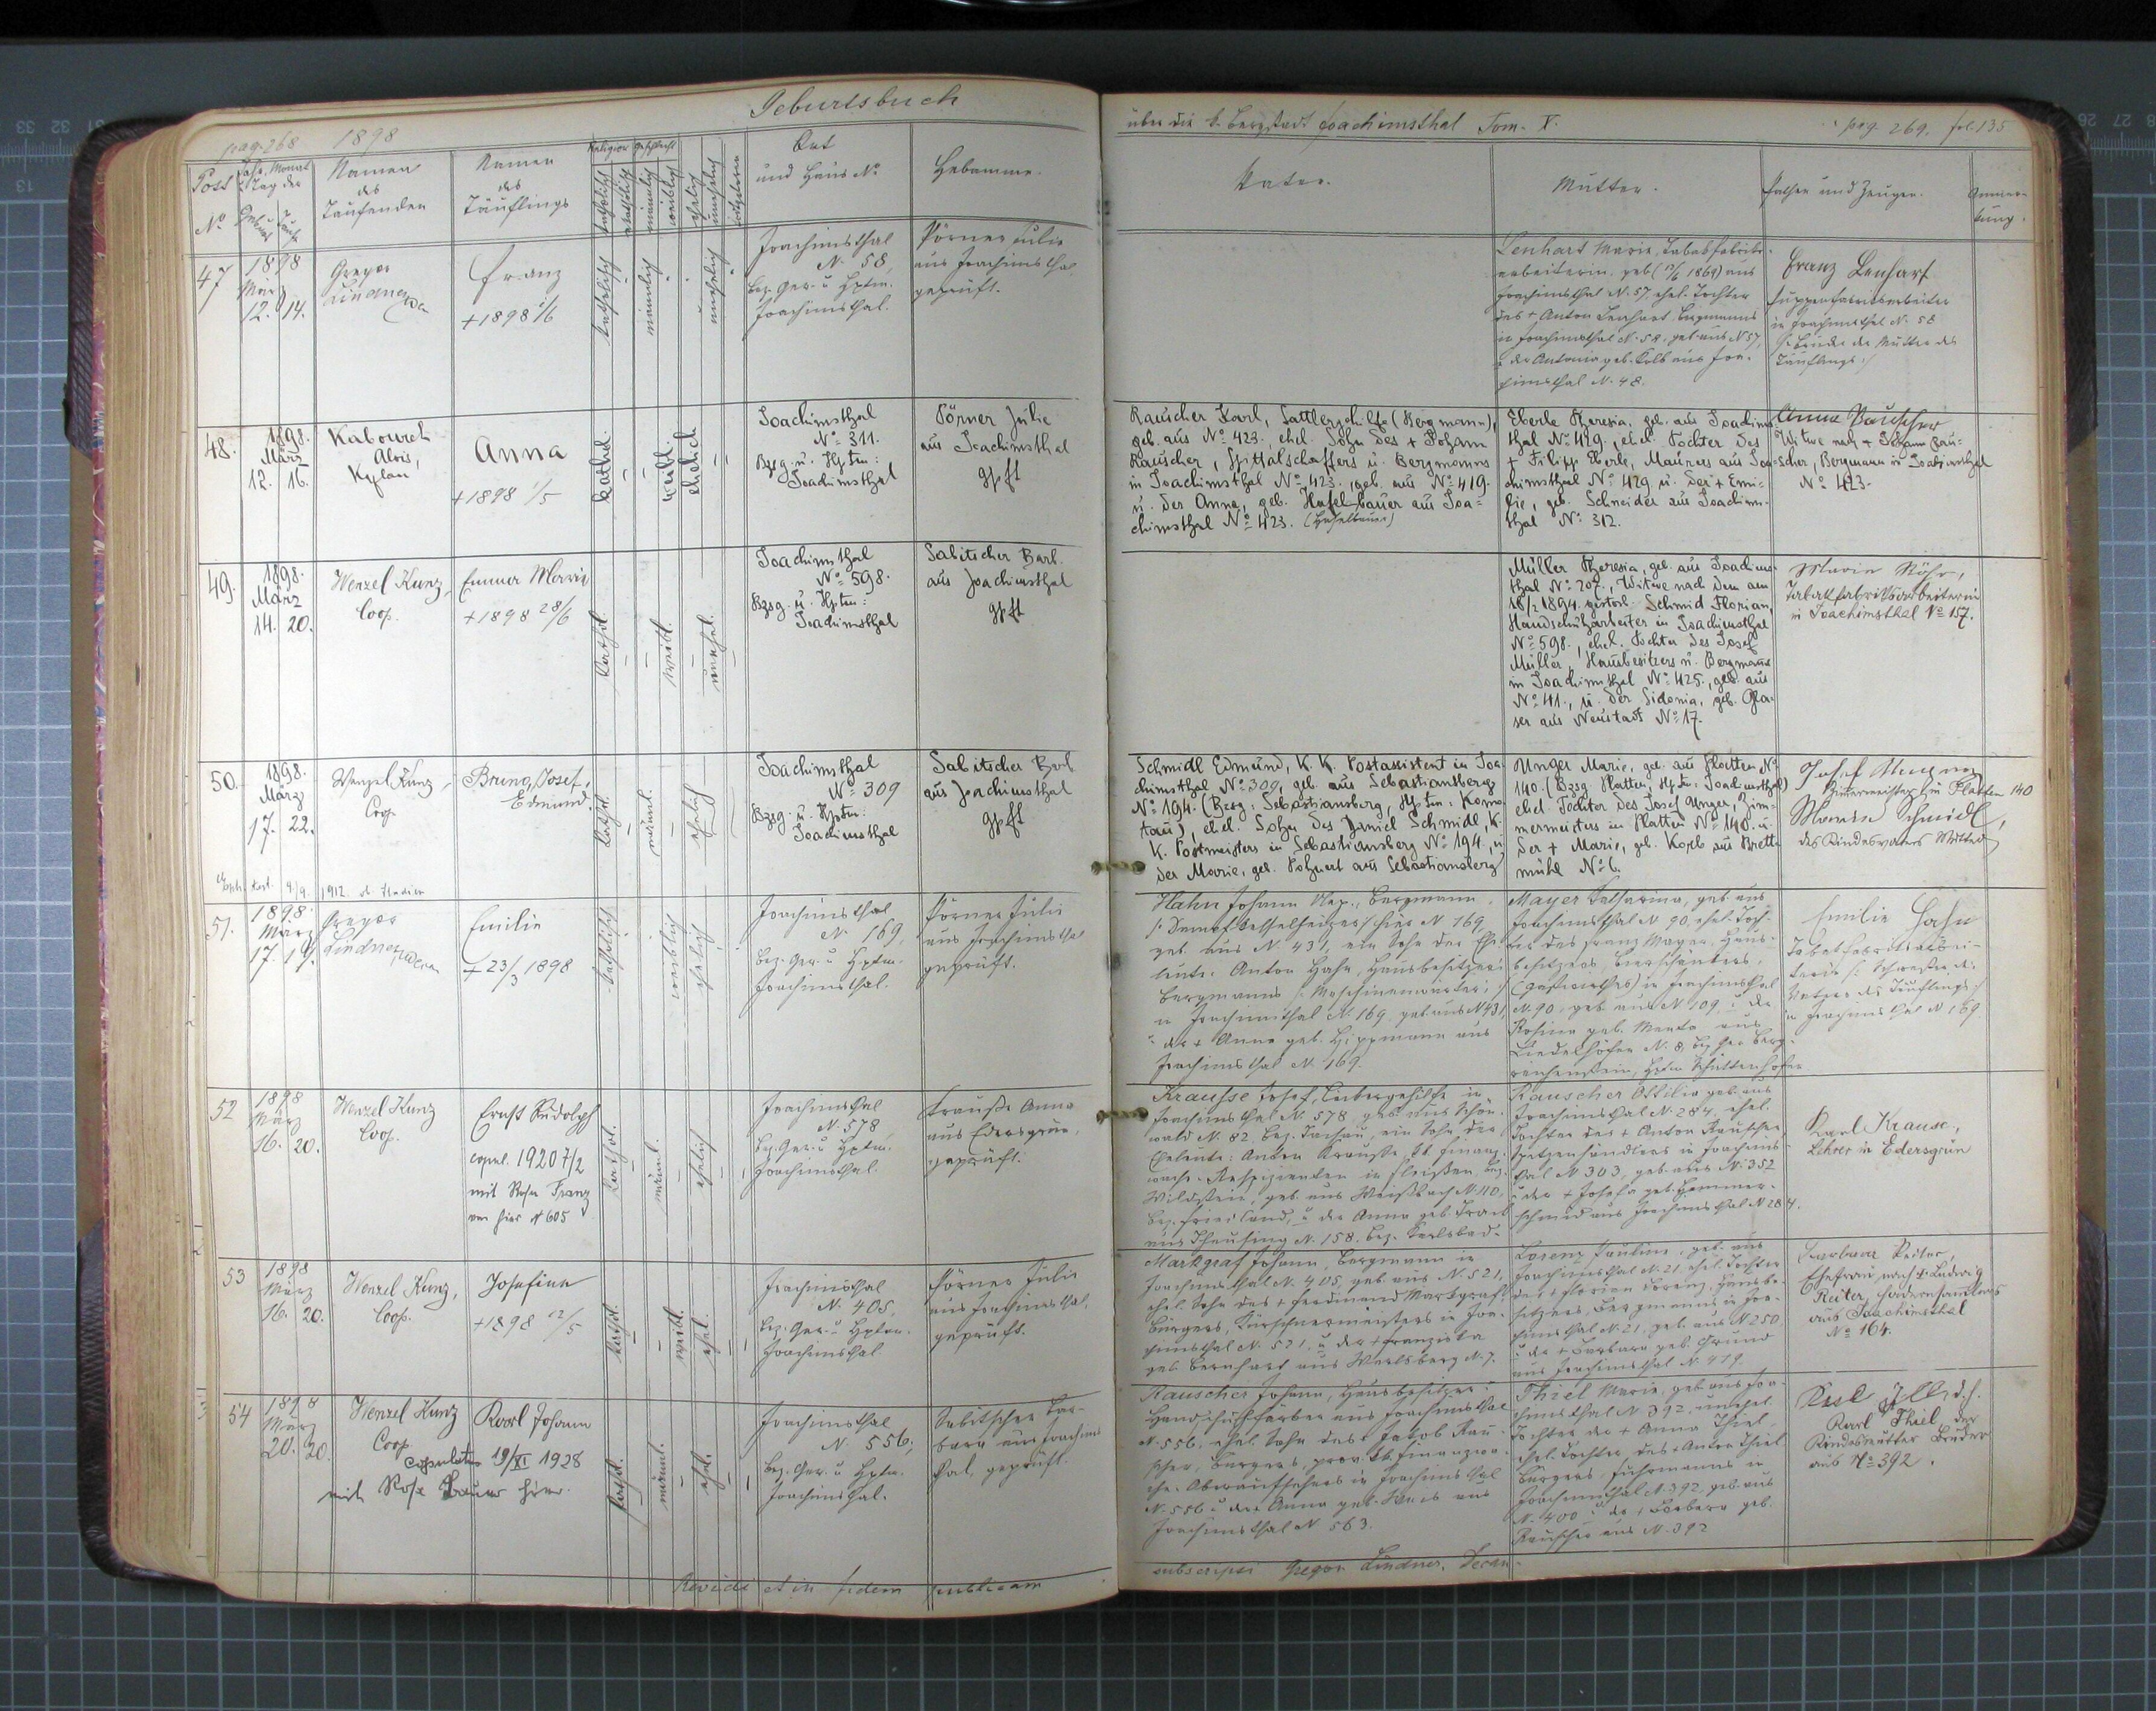 Geburtsbuch
pag. 268 1898
Post No
Jahr, Monat u. Tag der
Geburt Taufe
Namen des Taufenden
Namen des Täuflings
Religion Geschlecht
katholisch
männlich
weiblich
ehelich
unehelich
Ort und Haus No
Hebamme.
über die k. Bergstadt Joachimsthal Tom. X.
pag. 269. fol. 135
Vater.
Mutter.
Pathen und Zeugen.
Anmerkung.
47
1898
März
12. 14.
Gregor
Lindner
Franz
+ 1898 1/6
katholisch
männlich
unehelich
Joachimsthal
N. 58,
bez. Ger. u Hptm.
Joachimsthal.
Pörner Julie
aus Joachimsthal
geprüft.
Lenhart Marie, Tabakfabriks-
arbeiterin, geb. aus
Joachimsthal N. 57, ehel. Tochter
des + Anton Lenhart, Bergmanns
in Joachimsthal N. 58, geb. aus N 57,
u der Antonia geb. Kolb aus Joa-
chimsthal N. 48.
Franz Lenhart
in Joachimsthal N. 58
Bruder der Mutter des
Täuflings
48.
1898.
März
12. 16.
Kabourek
Alois,
Kplan
Anna
+ 1898 1/5
kathol.
weibl.
ehelich
Joachimsthal
No 311.
Bzsg. u. Hptm:
Joachimsthal
Pörner Julie
aus Joachimsthal
gpft
Rauscher Karl, Sattlergehilfe (Bergmann),
geb. aus No 423., ehel. Sohn des + Johann
Rauscher, Spittalschaffers u. Bergmanns
in Joachimsthal No 423. geb. aus No 419.
u. der Anna, geb. Haselbauer aus Joa=
chimsthal No 423. (Haselbauer)
Eberle Theresia, geb. aus Joachims
thal No 429., ehel. Tochter des
+ Filipp Eberle, Maurers aus Joa-
chimsthal No 429 u. der + Emi-
lie, geb. Schneider aus Joachims-
thal No 312.
Anna Rauscher
Witwe nach + Johann Rau-
scher, Bergmann in Joachimsthal
No 423.
49.
1898.
März
14. 20.
Wenzel Kunz,
Coop.
Emma Marie
+ 1898 28/6
kathol.
weibl.
unehel.
Joachimsthal
No 598.
Bzsg. u. Hptm:
Joachimsthal
Sabitscher Barb.
aus Joachimsthal
gpft
Müller Theresia, geb. aus Joachims-
thal No 207., Witwe nach dem am
18/2 1894. verstorb. Schmid Florian,
Handschuharbeiter in Joachimsthal
No 598., ehel. Tochter des Josef
Müller, Hausbesitzers u. Bergmanns
in Joachimsthal No 425., geb. aus
No 41., u. der Sidonia, geb. Gla-
ser aus Neustadt No 17.
Marie Röhr,
Tabakfabriksarbeiterin
in Joachimsthal No 157.
50.
1898.
März
17. 22.
Wenzel Kunz,
Coop.
Bruno, Josef,
Edmund.
kathol.
männl.
ehelich
Joachimsthal
No 309
Bzsg. u. Hptm:
Joachimsthal
Sabitscher Barb.
aus Joachimsthal
gpft
4/9. 1912.
Schmidl Edmund, K. K. Postassistent in Joa
chimsthal No 309, geb. aus Sebastiansberg
No 194. (Bzsg: Sebastiansberg, Hptm: Komo
tau), ehel. Sohn des Daniel Schmidl, K.
K. Postmeisters in Sebastiansberg No 194., u
der Marie, geb. Pohnert aus Sebastiansberg
Unger Marie, geb. aus Platten No
140. (Bzsg. Platten, Hptm: Joachimsthal)
ehel. Tochter des Josef Unger, Zim-
mermeisters in Platten No 140. u.
der + Marie, geb. Korb aus Brett-
mühl No 6.
Josef Unger
Zimmermeister in Platten 140
Marie Schmidl,
des Kindesvaters Mutter
51.
1898.
März
17. 19.
Gregor
Lindner
Emilie
+ 23/3 1898
katholisch
weiblich
ehelich
Joachimsthal
N. 169,
bez. Ger. u Hptm.
Joachimsthal.
Pörner Julie
aus Joachimsthal
geprüft.
Hahn Johann Nep., Bergmann,
/: Dampfkesselheizer :/ hier N 169,
geb. aus N. 431, ein Sohn der Ehe-
leute: Anton Hahn, Hausbesitzers
Bergmanns /: Maschinenwärters :/
in Joachimsthal N. 169, geb. aus N 431
u der + Anna geb. Hippmann aus
Joachimsthal N. 169.
Mayer Katharina, geb. aus
Joachimsthal N 90, ehel. Toch-
ter des Franz Mayer, Haus-
besitzers, Bierschänkers,
(Gastwirthes) in Joachimsthal
N. 90, geb. aus N 109, u der
Rosina geb. aus
N. 8, bez. Ger. Berg-
reichenstein, Hptm. Schüttenhofen
Emilie Hahn
Tabakfabriksarbei-
terin /: Schwester des
Vaters des Täuflings :/
in Joachimsthal N 169
52
1898
März
16. 20.
Wenzel Kunz
Coop.
Ernst Rudolph
copul. 1920 7/2
mit Franz
von hier N 605
kathol.
männl.
ehelich
Joachimsthal
N. 578
bez. Ger. u Hptm.
Joachimsthal.
Krauße Anna
aus Edersgrün,
geprüft.
Krauße Josef, in
Joachimsthal N. 578, geb. aus Schön-
wald N. 82 bez. Tachau, ein Sohn der
Eheleute: Anton Krauße, kk. Finanz-
wach-Respizienten in Fleißen bez.
Wildstein, geb. aus Weißbach N. 110,
bez. Friedland, u der Anna geb.
aus Theusing N. 158. bez. Karlsbad.
Rauscher Ottilia geb. aus
Joachimsthal N. 284, ehel.
Tochter des + Anton Rauscher,
Spitzenhändlers in Joachims-
thal N 303, geb. aus N. 352
u der + Josefa geb. Hammer-
schmid aus Joachimsthal N 284.
Karl Krause,
Lehrer in Edersgrün
53
1898
März
16. 20.
Wenzel Kunz,
Coop.
Josefine
+ 1898 12/5
kathol.
weibl.
ehel.
Joachimsthal
N. 405,
bez. Ger. u Hptm.
Joachimsthal.
Pörner Julie
aus Joachimsthal,
geprüft.
Markgraf Johann, Bergmann in
Joachimsthal N. 405, geb. aus N. 521,
ehel. Sohn des + Ferdinand Markgraf
Bürgers, Kürschnermeisters in Joa-
chimsthal N. 521, u der + Franziska
geb. Bernhart aus Werlsberg N. 7.
Lorenz Pauline, geb. aus
Joachimsthal N. 21, ehel. Tochter
des + Florian Lorenz, Hausbe-
sitzers, Bergmanns in Joa-
chimsthal N. 21, geb. aus N 250,
u der + Barbara geb. Grund
aus Joachimsthal N. 419.
Barbara Reiter,
Ehefrau nach + Ludwig
Reiter, Hadernsammlers
aus Joachimsthal
No 164.
54
1898
März
20. 20.
Wenzel Kunz
Coop
Karl Johann
copulatus 19/XI 1928
mit Rosa Bauer hier.
kathol.
männl.
ehel.
Joachimsthal
N. 556,
bez. Ger. u Hptm.
Joachimsthal.
Sabitscher Bar-
bara aus Joachims
thal, geprüft.
Rauscher Johann, Hausbesitzer,
Handschuhfärber aus Joachimsthal
N. 556, ehel. Sohn des + Jacob Rau-
scher, Bürgers, prov. kk. Finanzwa-
che-Oberaufsehers in Joachimsthal
N. 556 u der Anna geb. aus
Joachimsthal N 563.
Thiel Marie, geb. aus Joa-
chimsthal N 392, unehel.
Tochter der + Anna Thiel,
ehel. Tochter des + Anton Thiel
Bürgers, Fuhrmanns in
Joachimsthal N. 392, geb. aus
N. 400 u der + Barbara geb.
Rauscher aus N. 392
d. h.
Karl Thiel, der
Kindesmutter Bruder
aus No 392.
Revidi et in fidem publicam
subscripsi Gregor Lindner, Decan.